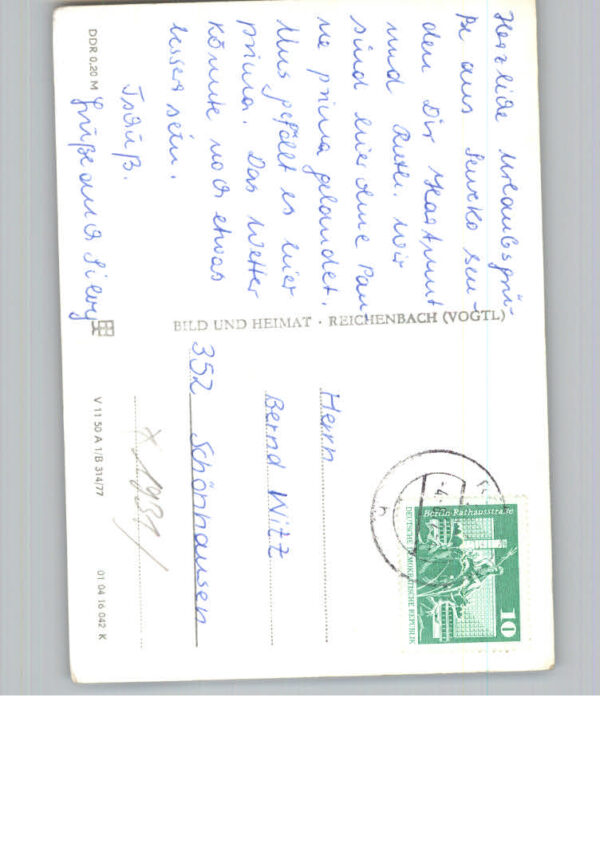 Herzliche Urlaubsgrü-
ße aus
den Dir Hartmut
und Ruth. Wir
sind hier ohne Pan-
ne prima gelandet.
Uns gefällt es hier
prima. Das Wetter
könnte noch etwas
besser sein.
Tschüß.
Grüße auch Silvy
DDR 0,20 M
BILD UND HEIMAT · REICHENBACH (VOGTL)
V 11 50 A 1/B 314/77
01 04 16 042 K
Herrn
Bernd Witz
352 Schönhausen
x 1981/
Berlin-Rathausstraße
DEUTSCHE DEMOKRATISCHE REPUBLIK
10